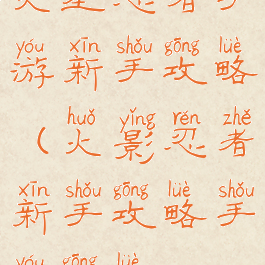 yóu xīn shǒu gōng lüè
游新手攻略
huǒ yǐng rěn zhě
（火影忍者
xīn shǒu gōng lüè shǒu
新手攻略手
yóu gōng lüè